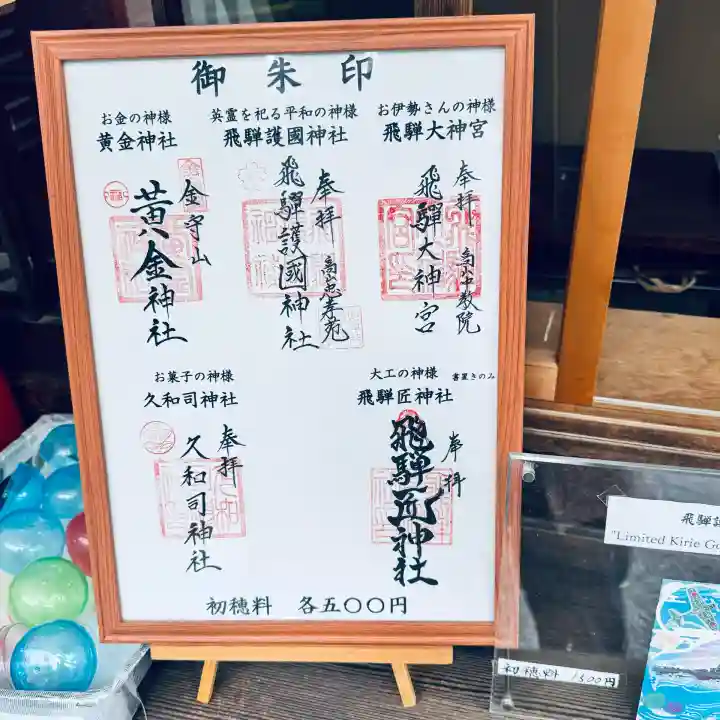 御朱印
お金の神様
黄金神社
英霊を祀る平和の神様
飛騨護國神社
お伊勢さんの神様
飛騨大神宮
金
金守山
黄金神社
奉拝
飛騨護國神社
高山忠孝苑
奉拝
飛騨大神宮
高山中教院
お菓子の神様
久和司神社
大工の神様
書置きのみ
飛騨匠神社
奉拝
久和司神社
奉拝
飛騨匠神社
初穂料 各五〇〇円
飛騨護
"Limited Kirie Go
初穂料 1500円